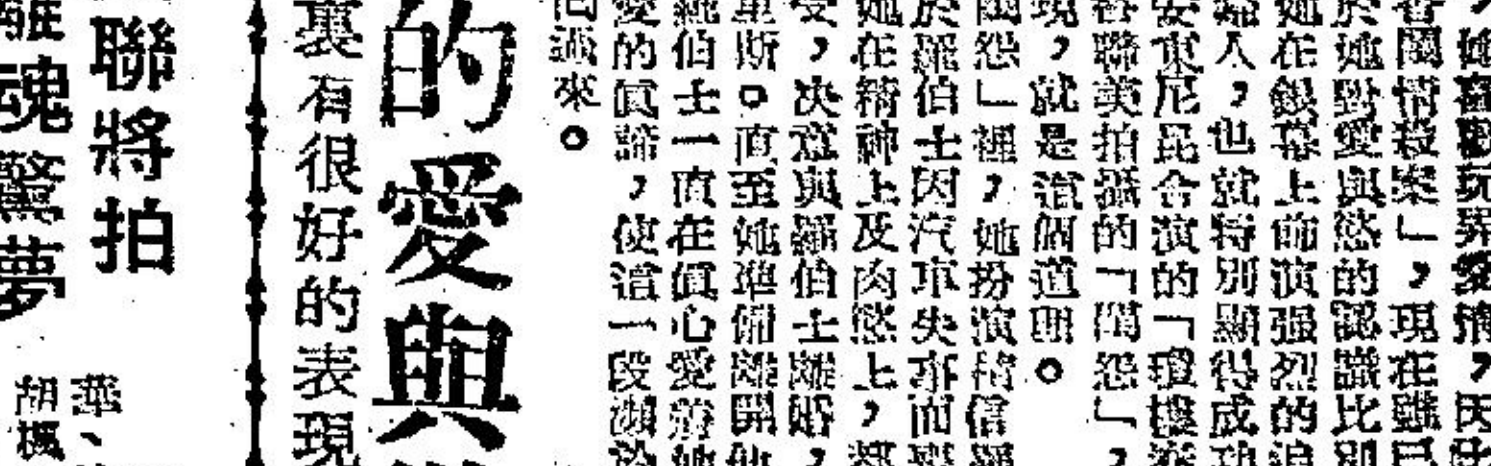 ，她喜歡玩弄愛情，因此
香閨情殺案」，現在雖已
於她對愛與慾的認識比別
她在銀幕上飾演强烈的浪
婦人，也就特別顯得成功
安東尼昆合演的「瓊樓春
聯美拍攝的「閨怨」，
現，就是這個道理。
閨怨」裡，她扮演積信羅
於羅伯士因汽車失事而喪
她在精神上及肉慾上，都
受，決意與羅伯士離婚，
斯。直至她準備離開他
伯士一直在真心愛着她
愛的真諦，使這一段瀕於
來。
的愛與
裏有很好的表現
聯將拍
離魂驚夢
華、
胡楓